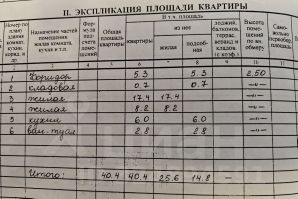 II. ЭКСПЛИКАЦИЯ ПЛОЩАДИ КВАРТИРЫ
Номер по плану здания комнат, кухни, корид. и т. п.
Назначение частей помещения: жилая комната, кухня и т.п.
Общая площадь квартиры
В т.ч. площадь
квартиры
из нее
жилая
подсобная
лоджий, балконов, террас, веранд и кладов. (с коэф.)
Высота помещений по вн. обмеру
1 2 3 4 5 6 7 8 9 10 11
1 Коридор 5.3 5.3 2,50
2 кладовая 0.7 0.7 —„—
3 жилая 17.4 17.4 —„—
4 жилая 8.2 8.2 —„—
5 кухня 6.0 6.0 —„—
6 ван. туал 2.8 2.8 —„—
Итого: 40.4 40.4 25.6 14.8 —